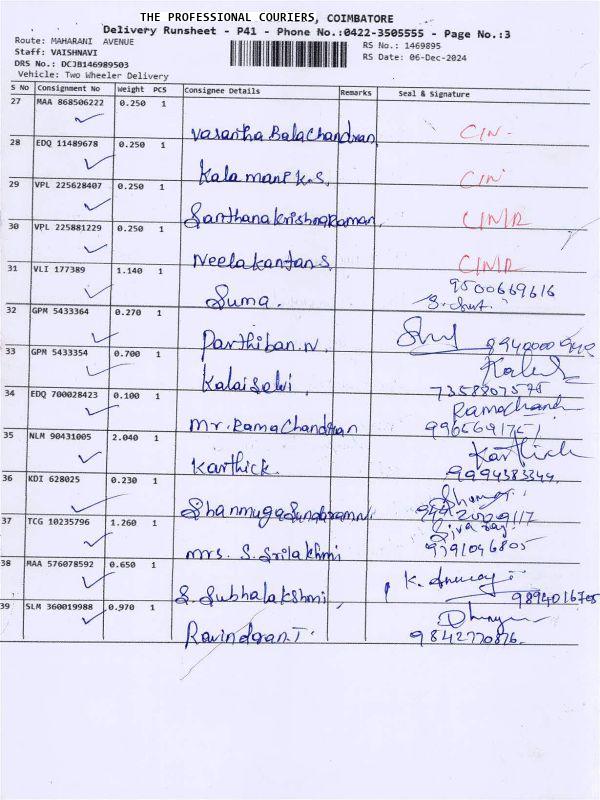 THE PROFESSIONAL COURIERS, COIMBATORE
Delivery Runsheet - P41 - Phone No.:0422-3505555 - Page No.:3
Route: MAHARANI AVENUE
Staff: VAISHNAVI
DRS No.: DCJB146989503
Vehicle: Two Wheeler Delivery
RS No.: 1469895
RS Date: 06-Dec-2024
S No Consignment No Weight PCS Consignee Details Remarks Seal & Signature
27 MAA 868506222 0.250 1
Vasantha Balachandran C/N-
28 EDQ 11489678 0.250 1
Kalamani K.S. C/N
29 VPL 225628407 0.250 1
Santhanakrishnaraman C/N/R
30 VPL 225881229 0.250 1
Neelakantan.S C/N/R
31 VLI 177389 1.140 1
Suma. 9500669616
32 GPM 5433364 0.270 1
Parthiban.N
33 GPM 5433354 0.700 1
Kalaiselvi
34 EDQ 700028423 0.100 1
Mr. Ramachandran
35 NLM 90431005 2.040 1
Karthick. Karthick
9994383344
36 KDI 628025 0.230 1
Shanmuga Sundaram
37 TCG 10235796 1.260 1
Mrs. S. Srilakhmi 9791046805
38 MAA 576078592 0.650 1
S. Subhalakshmi
39 SLM 360019988 0.970 1
Ravindran.T. 9842770876.